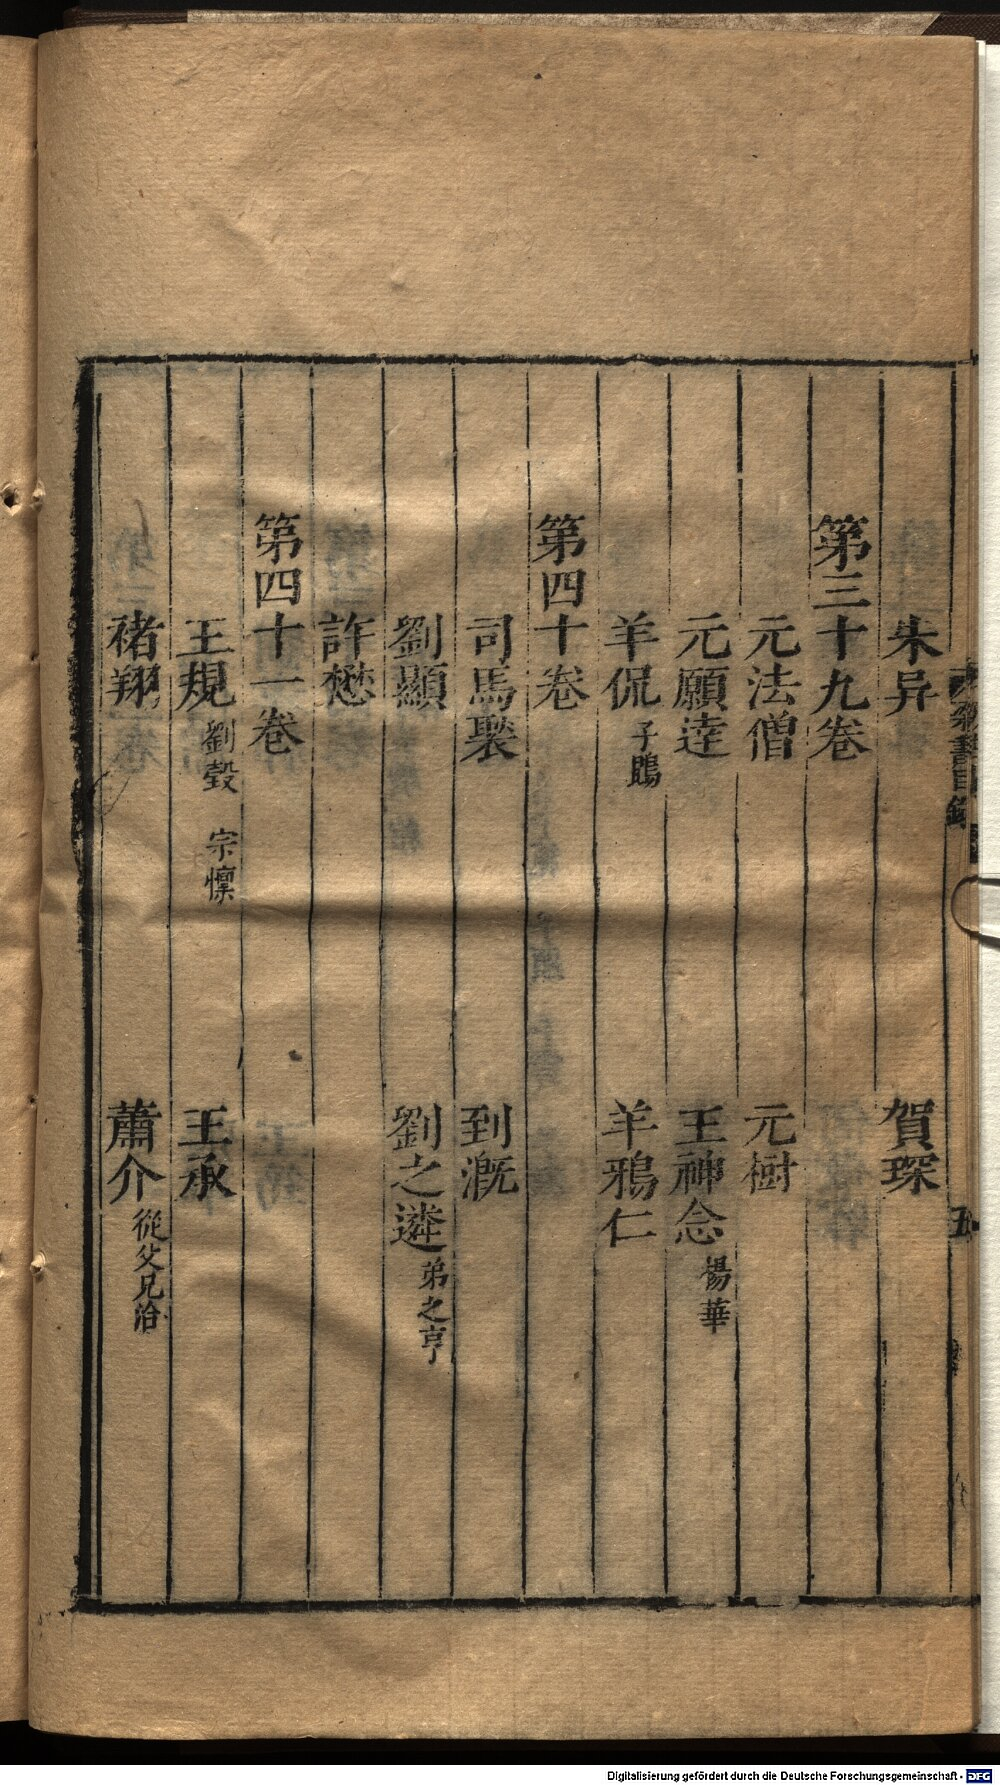 朱异 賀琛
第三十九卷
元法僧 元樹
元願逹 王神念 楊華
羊侃 子鵾 羊鴉仁
第四十卷
司馬褧 到溉
劉顯 劉之遴 弟之亨
許懋
第四十一卷
王規 劉瑴 宗懍 王承
褚翔 蕭介 從父兄洽
梁書目錄 五
Digitalisierung gefördert durch die Deutsche Forschungsgemeinschaft - DFG